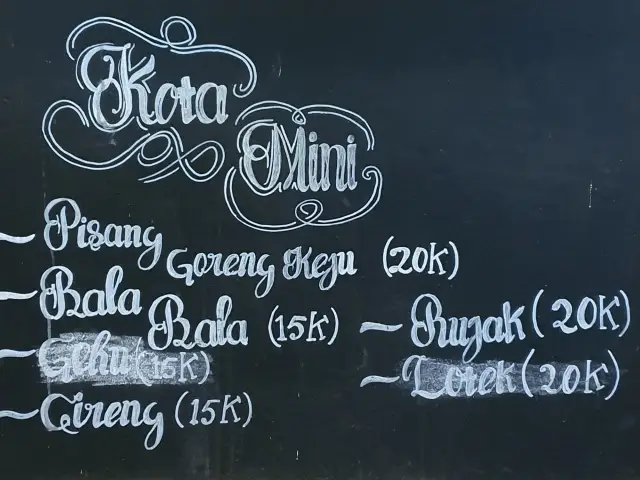 Kota
Mini
~ Pisang Goreng Keju (20K)
~ Bala Bala (15K)
~ Gehu (15K)
~ Cireng (15K)
~ Rujak (20K)
~ Lotek (20K)